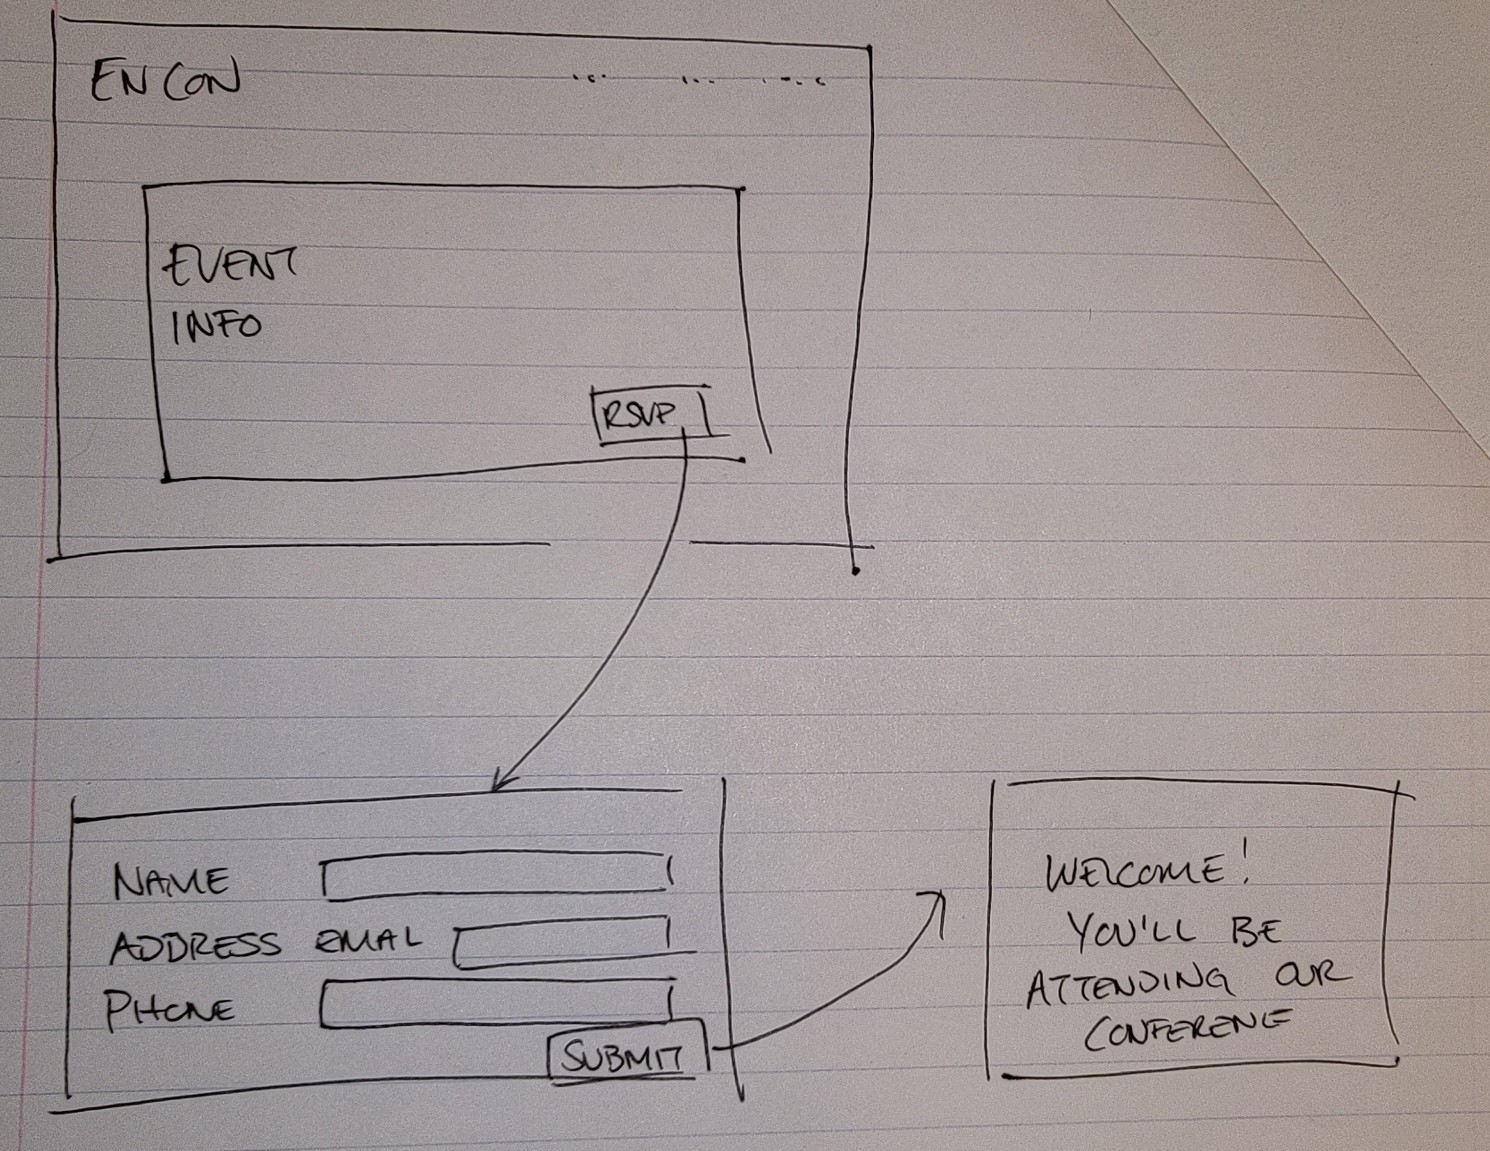 EN CON
EVENT
INFO
RSVP
NAME
ADDRESS EMAL
PHONE
SUBMIT
WELCOME!
YOU'LL BE
ATTENDING OUR
CONFERENE